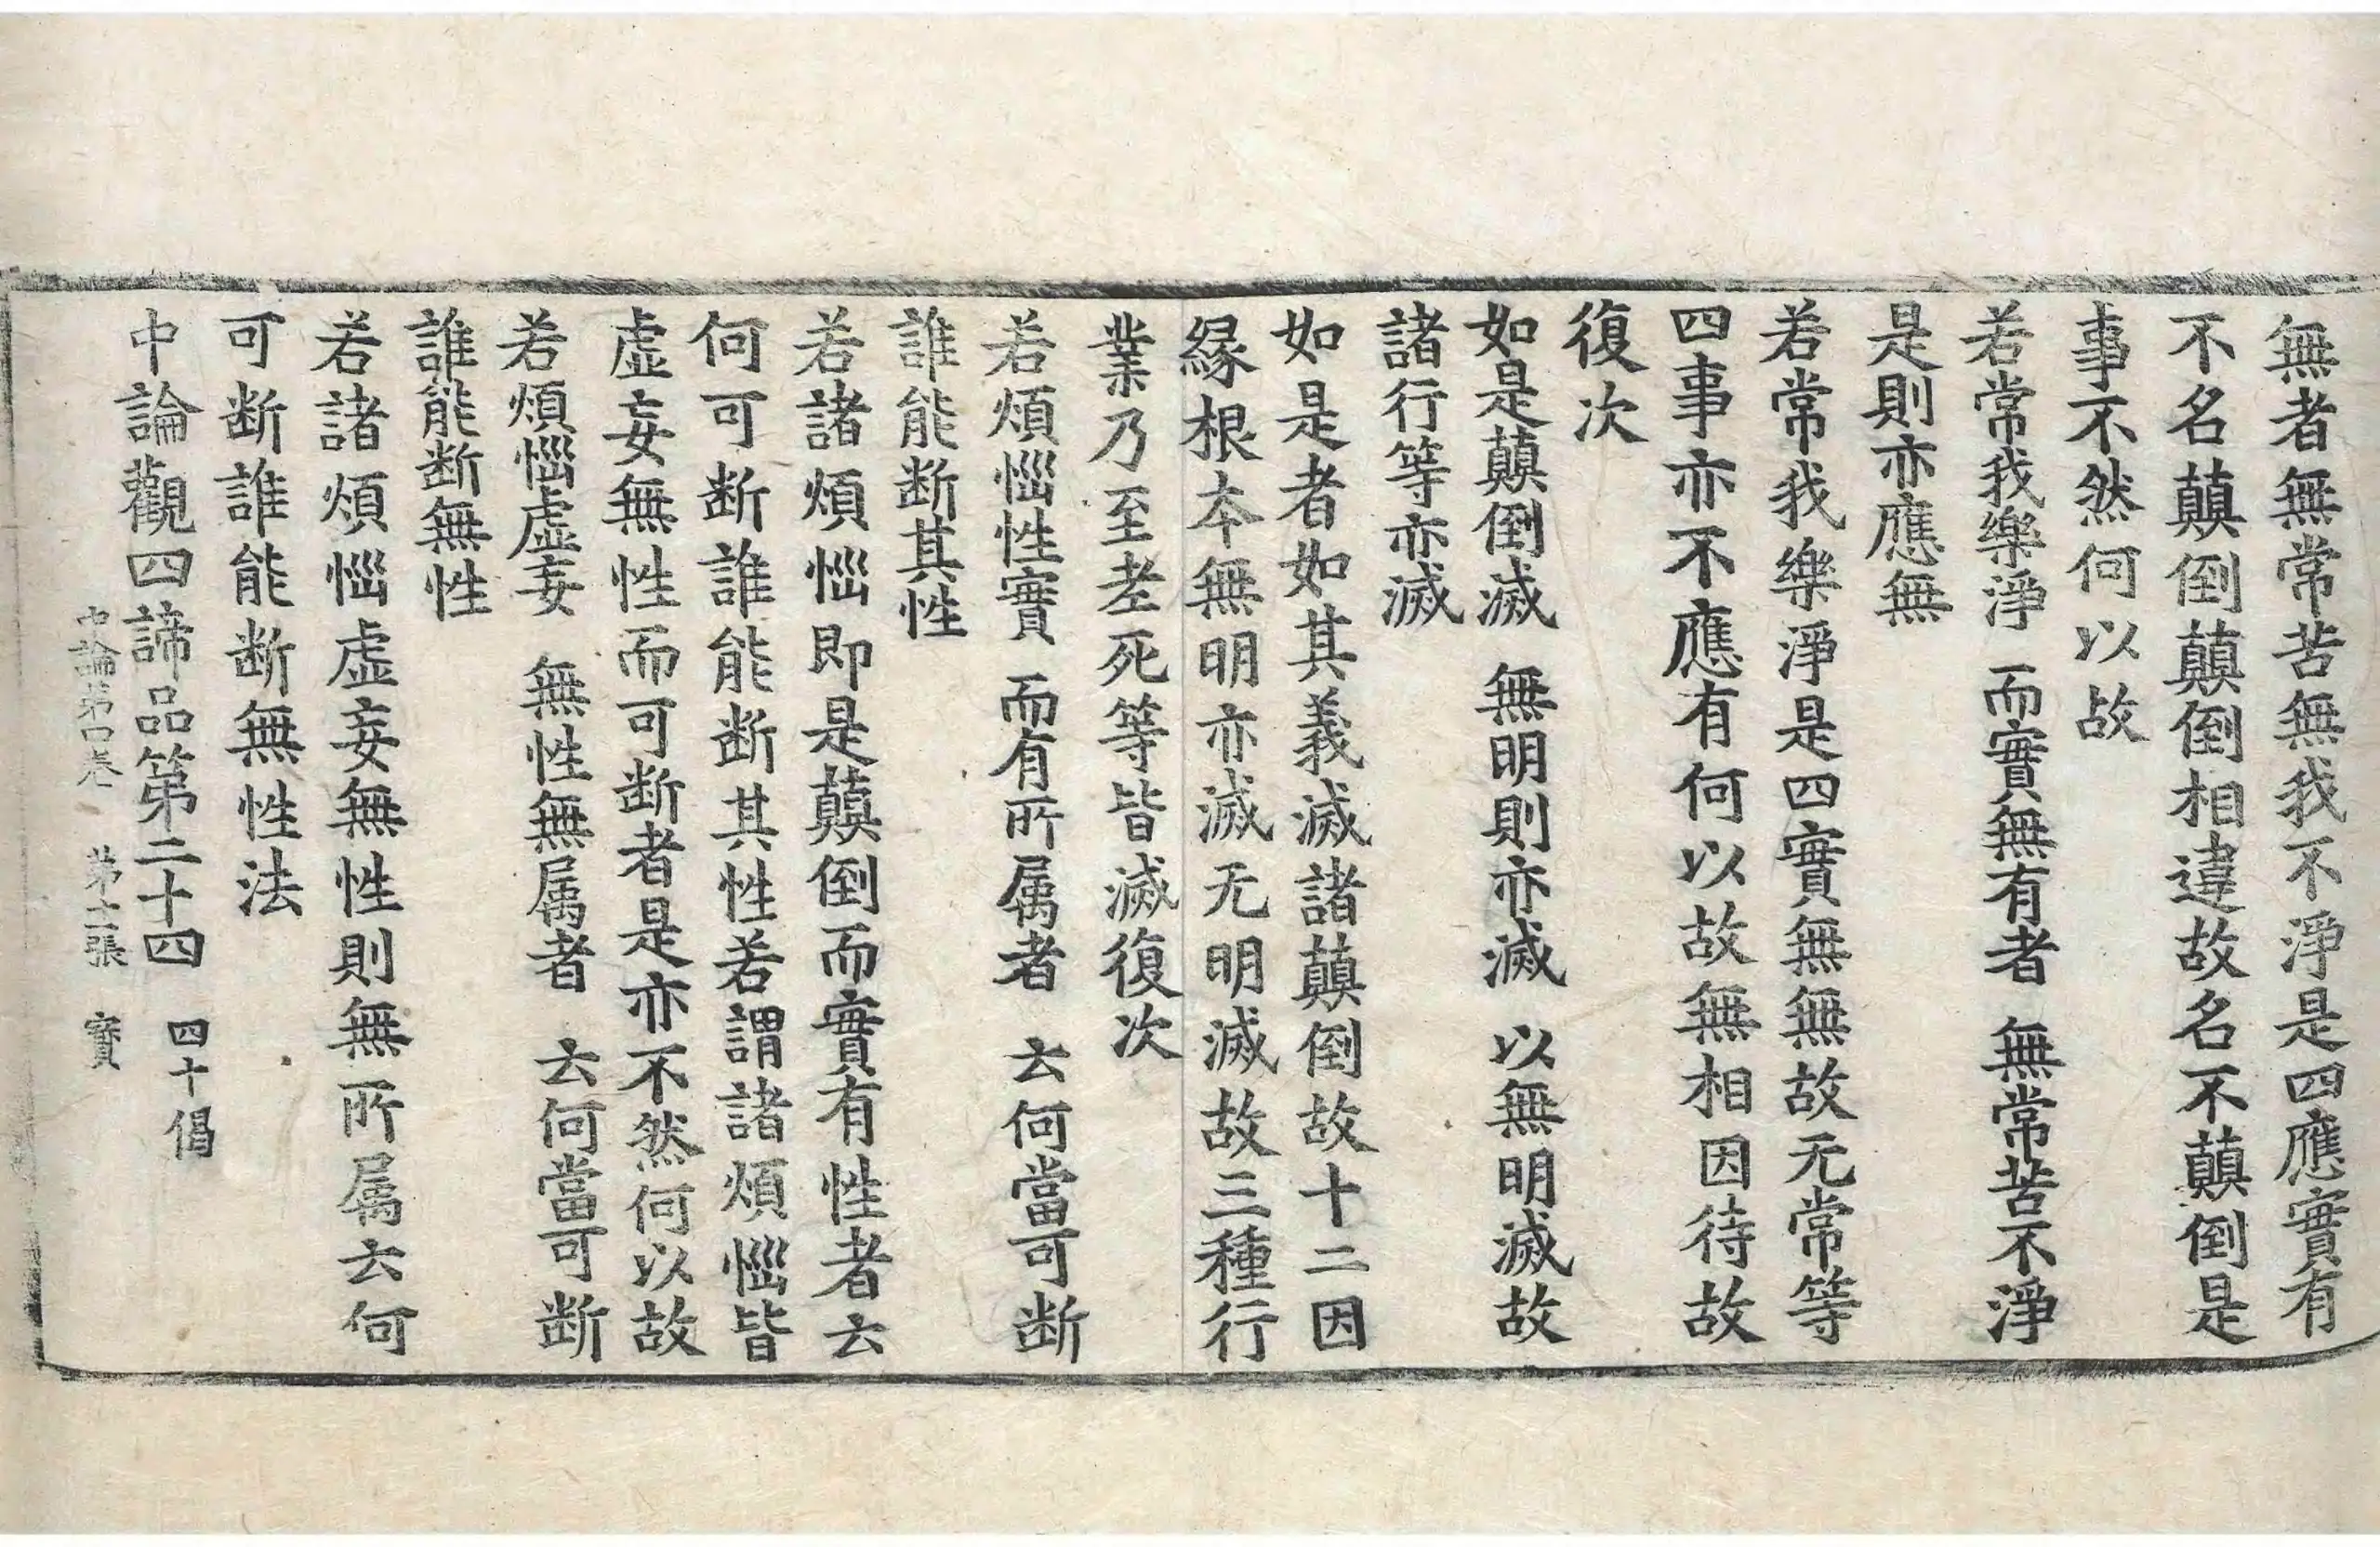 無者無常苦無我不淨是四應實有
不名顛倒顛倒相違故名不顛倒是
事不然何以故
若常我樂淨　而實無有者　無常苦不淨
是則亦應無
若常我樂淨是四實無無故无常等
四事亦不應有何以故無相因待故
復次
如是顛倒滅　無明則亦滅　以無明滅故
諸行等亦滅
如是者如其義滅諸顛倒故十二因
縁根本無明亦滅无明滅故三種行
業乃至老死等皆滅復次
若煩惱性實　而有所属者　云何當可断
誰能断其性
若諸煩惱即是顛倒而實有性者云
何可断誰能断其性若謂諸煩惱皆
虛妄無性而可断者是亦不然何以故
若煩惱虛妄　無性無属者　云何當可断
誰能断無性
若諸煩惱虛妄無性則無所属云何
可断誰能断無性法
中論觀四諦品第二十四　四十偈
中論第四卷　第十二張　實